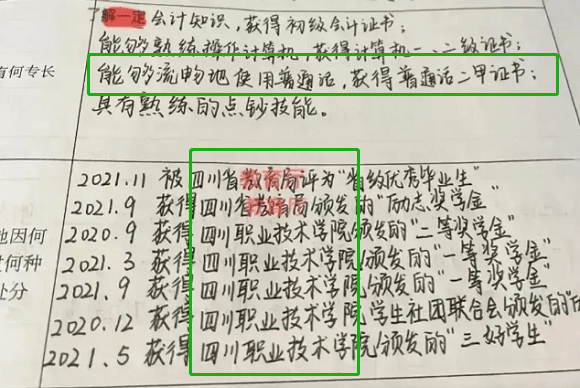 了解一定会计知识,获得初级会计证书;
能够熟练操作计算机,获得计算机一、二级证书;
有何专长
能够流畅地使用普通话,获得普通话二甲证书;
具有熟练的点钞技能。
2021.11 被四川省教育局评为"省级优秀毕业生"
教育厅
2021.9 获得四川省教育局颁发的"励志奖学金"
因何
2020.9 获得四川职业技术学院颁发的"二等奖学金"
何种
2021.3 获得四川职业技术学院颁发的"一等奖学金"
处分
2021.9 获得四川职业技术学院颁发的"一等奖学金"
2020.12 获得四川职业技术学院学生社团联合会颁发的"
2021.5 获得四川职业技术学院颁发的"三好学生"